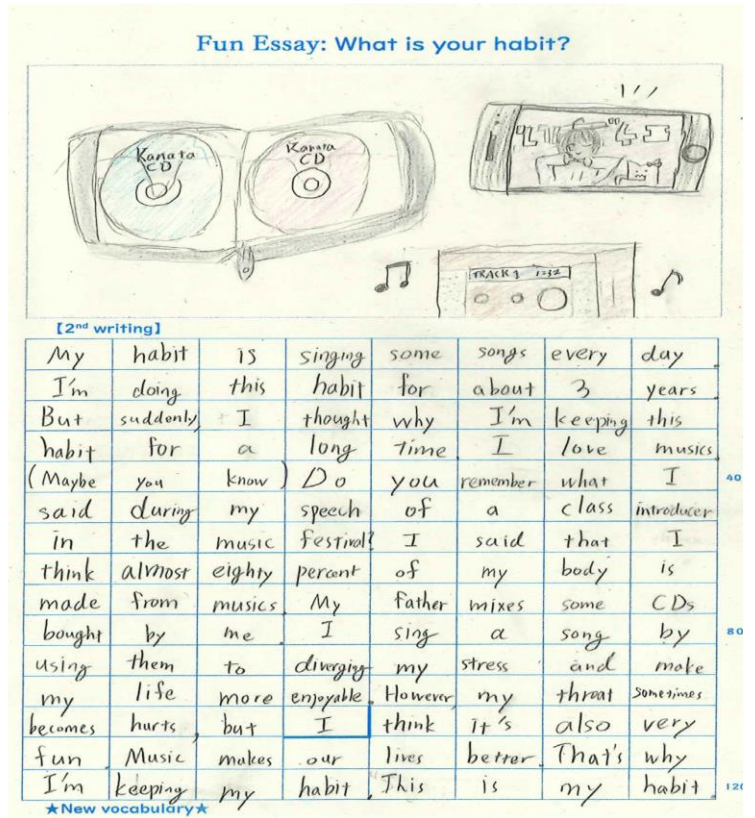 Fun Essay: What is your habit?
Kanata CD
Kanata CD
TRACK 1:32
【2nd writing】
My habit is singing some songs every day.
I'm doing this habit for about 3 years.
But suddenly, I thought why I'm keeping this
habit for a long time. I love musics.
(Maybe you know) Do you remember what I
40
said during my speech of a class introducer
in the music festival? I said that I
think almost eighty percent of my body is
made from musics. My father mixes some CDs
bought by me. I sing a song by
80
using them to diverging my stress and make
my life more enjoyable. However, my throat sometimes
becomes hurts, but I think it's also very
fun. Music makes our lives better. That's why
I'm keeping my habit. This is my habit.
120
★New vocabulary★